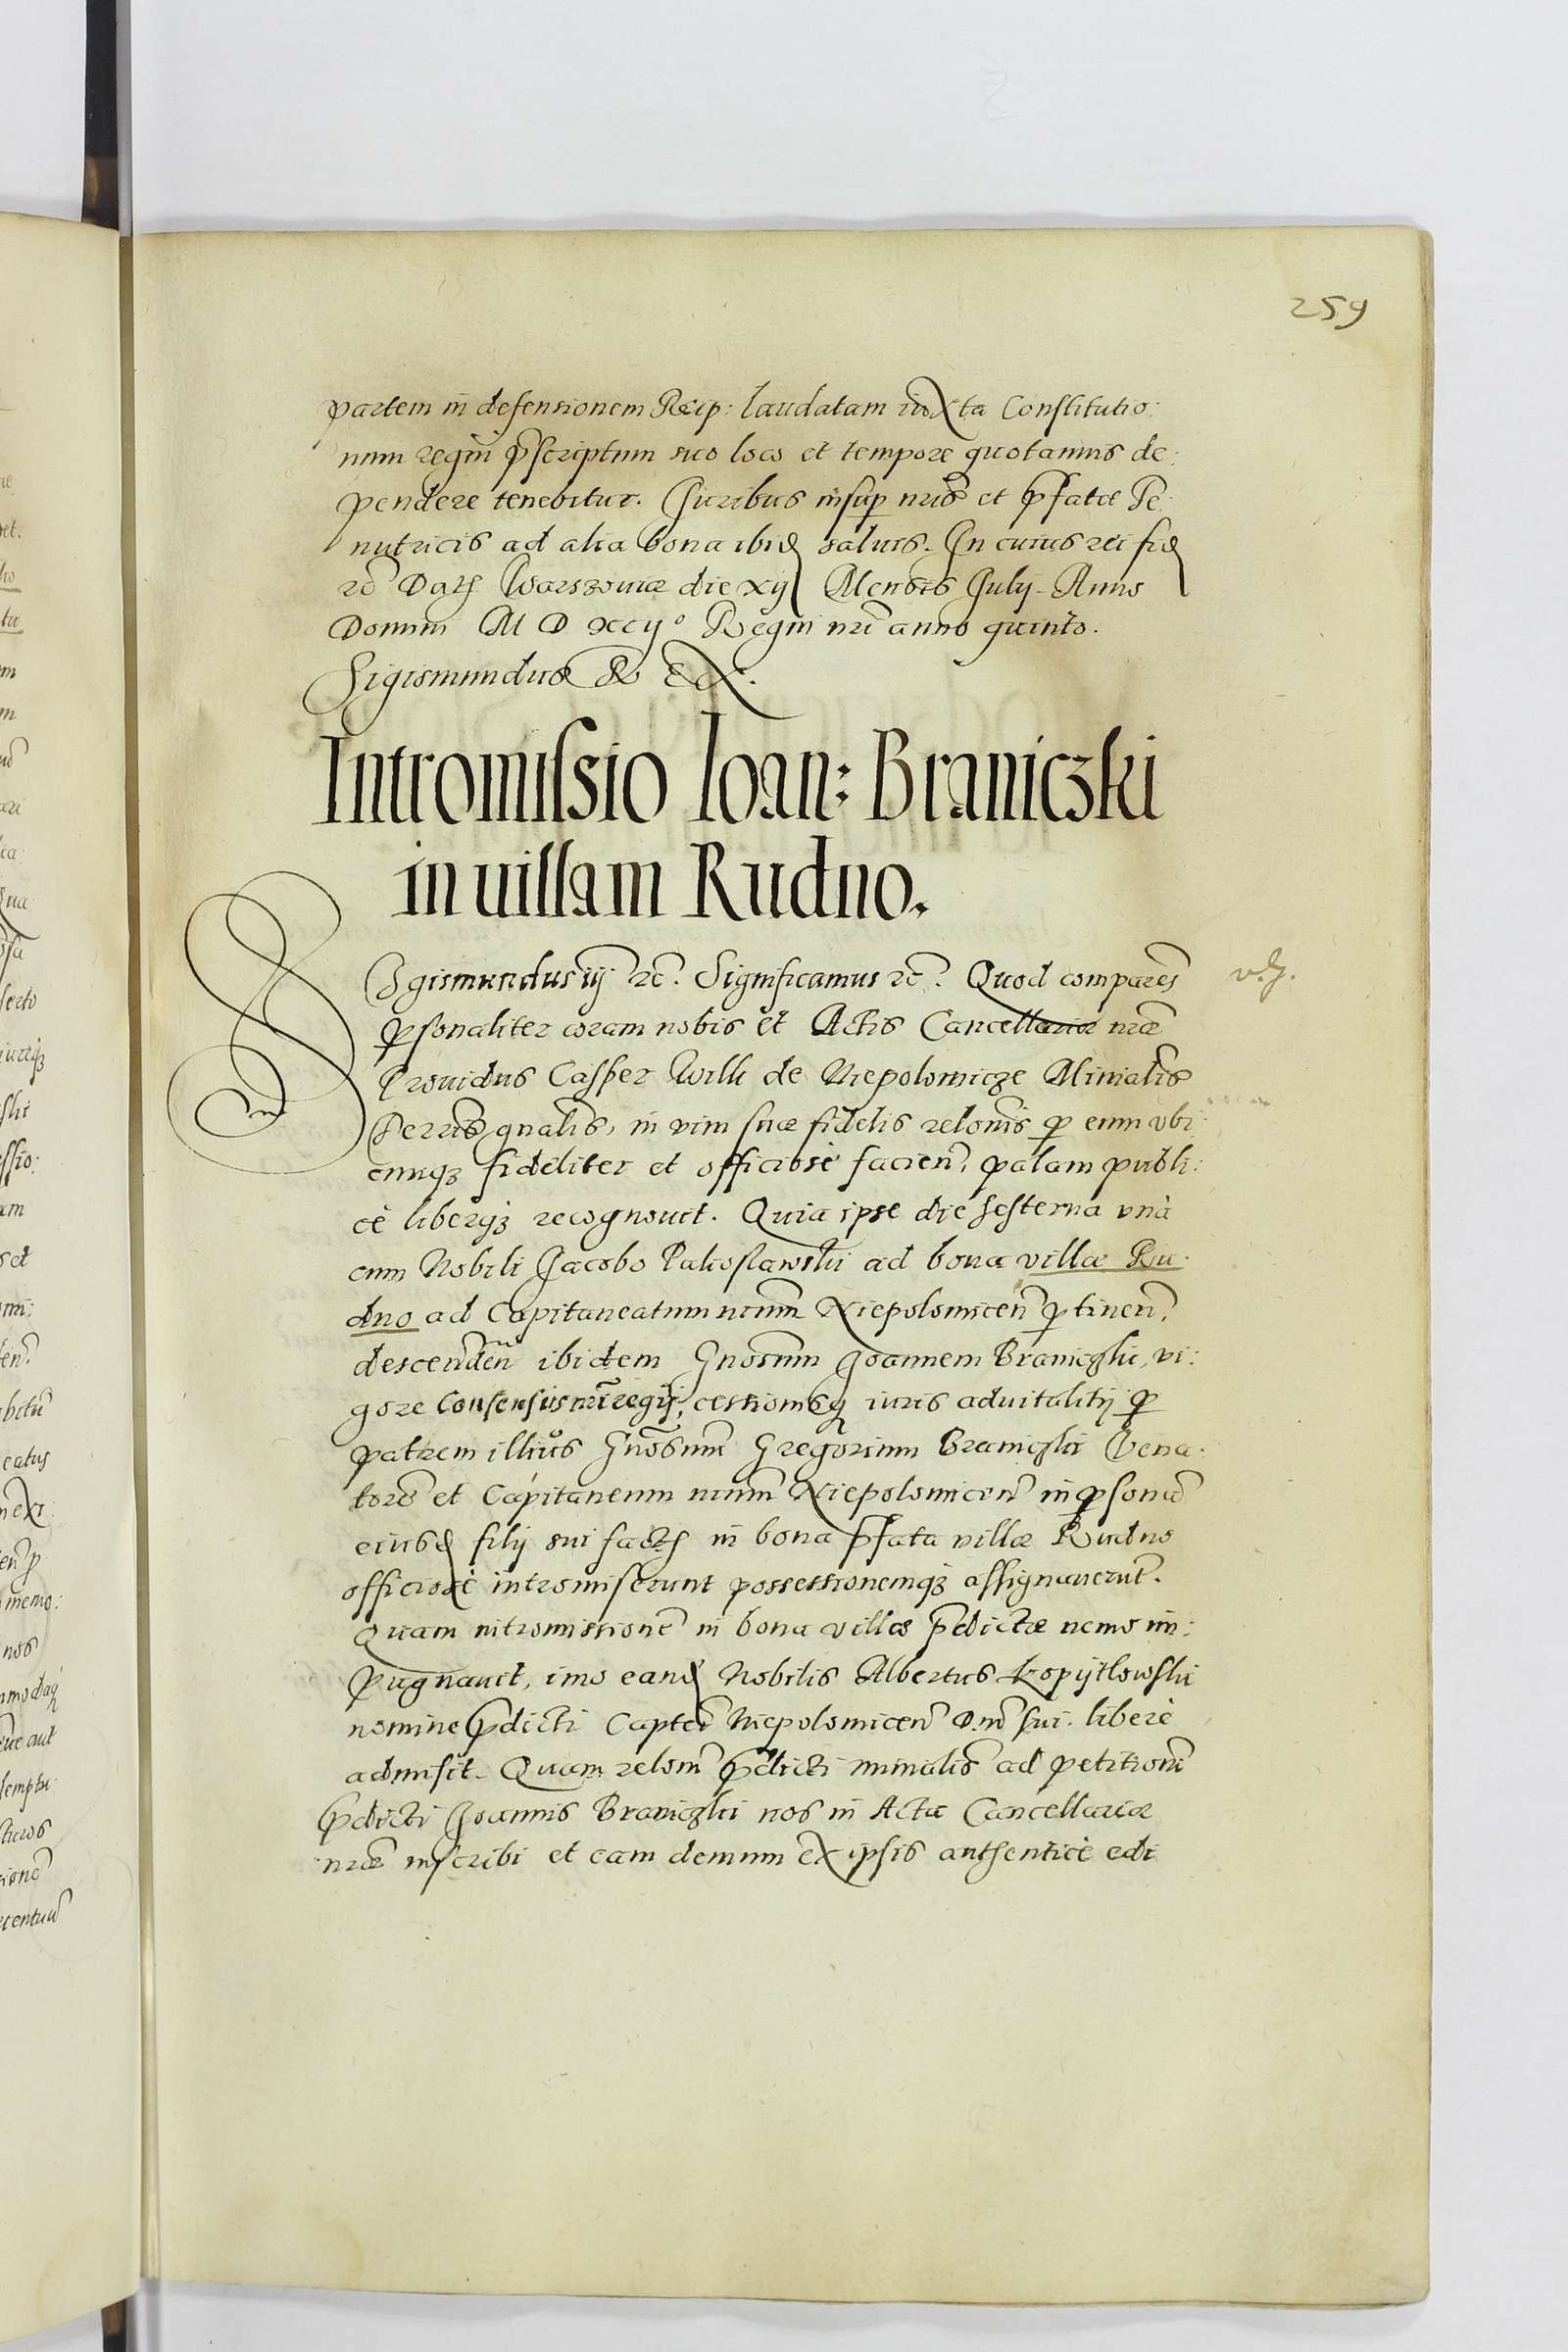 259
partem in defensionem Reip: laudatam iuxta Constitutio:
num regni pscriptum suo loco et tempore quotannis de:
pendere tenebitur. Juribus insup nris et pfatae Te:
nutricis ad alia bona ibid salvis. In cuius rei fid
rc Dat Warszoviae die xij Mensis Julij Anno
Domini M D xcij° Regni nri anno quinto.
Sigismundus Rex.
Intromissio Ioan: Braniczki
in villam Rudno.
Sigismundus iij rc. Significamus rc. Quod comparens
psonaliter coram nobis et Actis Cancellariae nrae
Providus Casper Wilk de Niepolomicze Minialis
Terris gnalis, in vim suae fidelis relonis p eum ubi:
cunq fideliter et officiose facien, palam publi:
cè liberq recognovit. Quia ipse die hesterna unà
cum Nobili Jacobo Pakoslawski ad bona villae Ru:
dno ad Capitaneatum nrum Niepolomicen ptinen,
descenden ibidem Gnosum Joannem Braniczki, vi:
gore Consensus nri regij, cessionisq iuris advitalitij p
patrem illius Gnosum Gregorium Braniczki Vena:
tore et Capitaneum nrum Niepolomicen in psona
eiusd filij sui fact in bona pfata villae Rudno
officiosè intromiserunt possessionemq assignaverut.
Quam intromissione in bona villae pdictae nemo im:
pugnavit, imo eand Nobilis Albertus Kopijtkowski
nomine pdicti Captei Niepolomicen D.ni sui liberè
admisit. Quam relom pdicti minialis ad petitionem
pdicti Joannis Braniczki nos in Acta Cancellariae
nrae inscribi et eam demum ex ipsis authenticè edi